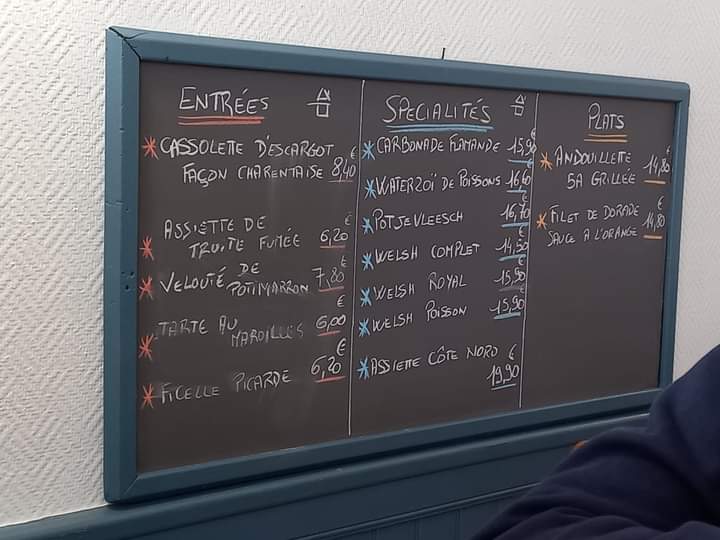 ENTRÉES
* CASSOLETTE D'ESCARGOT
FAÇON CHARENTAISE 8,40 €
* ASSIETTE DE
TRUITE FUMÉE 6,20 €
* VELOUTÉ DE
POTIMARRON 7,80 €
* TARTE AU
MAROILLES 6,00 €
* FICELLE PICARDE 6,20 €
SPECIALITÉS
* CARBONADE FLAMANDE 15,90 €
* WATERZOÏ DE POISSONS 16,60 €
* POTJEVLEESCH 16,70 €
* WELSH COMPLET 14,50 €
* WELSH ROYAL 15,90 €
* WELSH POISSON 15,90 €
* ASSIETTE CÔTE NORD €
19,90
PLATS
* ANDOUILLETTE
5A GRILLÉE 14,80 €
* FILET DE DORADE
SAUCE A L'ORANGE 14,80 €